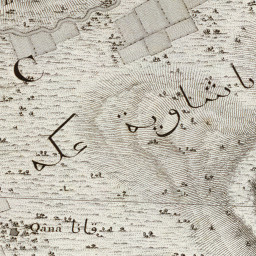 C
باشاوية
عكه
Qânâ قانا